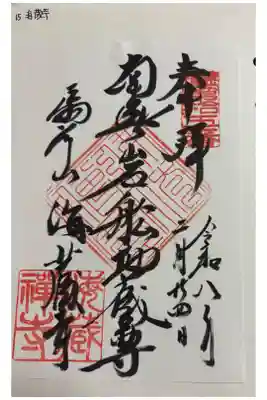 15 海蔵寺
奉拝
令和八年
二月廿四日
南無岩船地蔵尊
扇谷山 海蔵寺
海蔵
禅寺